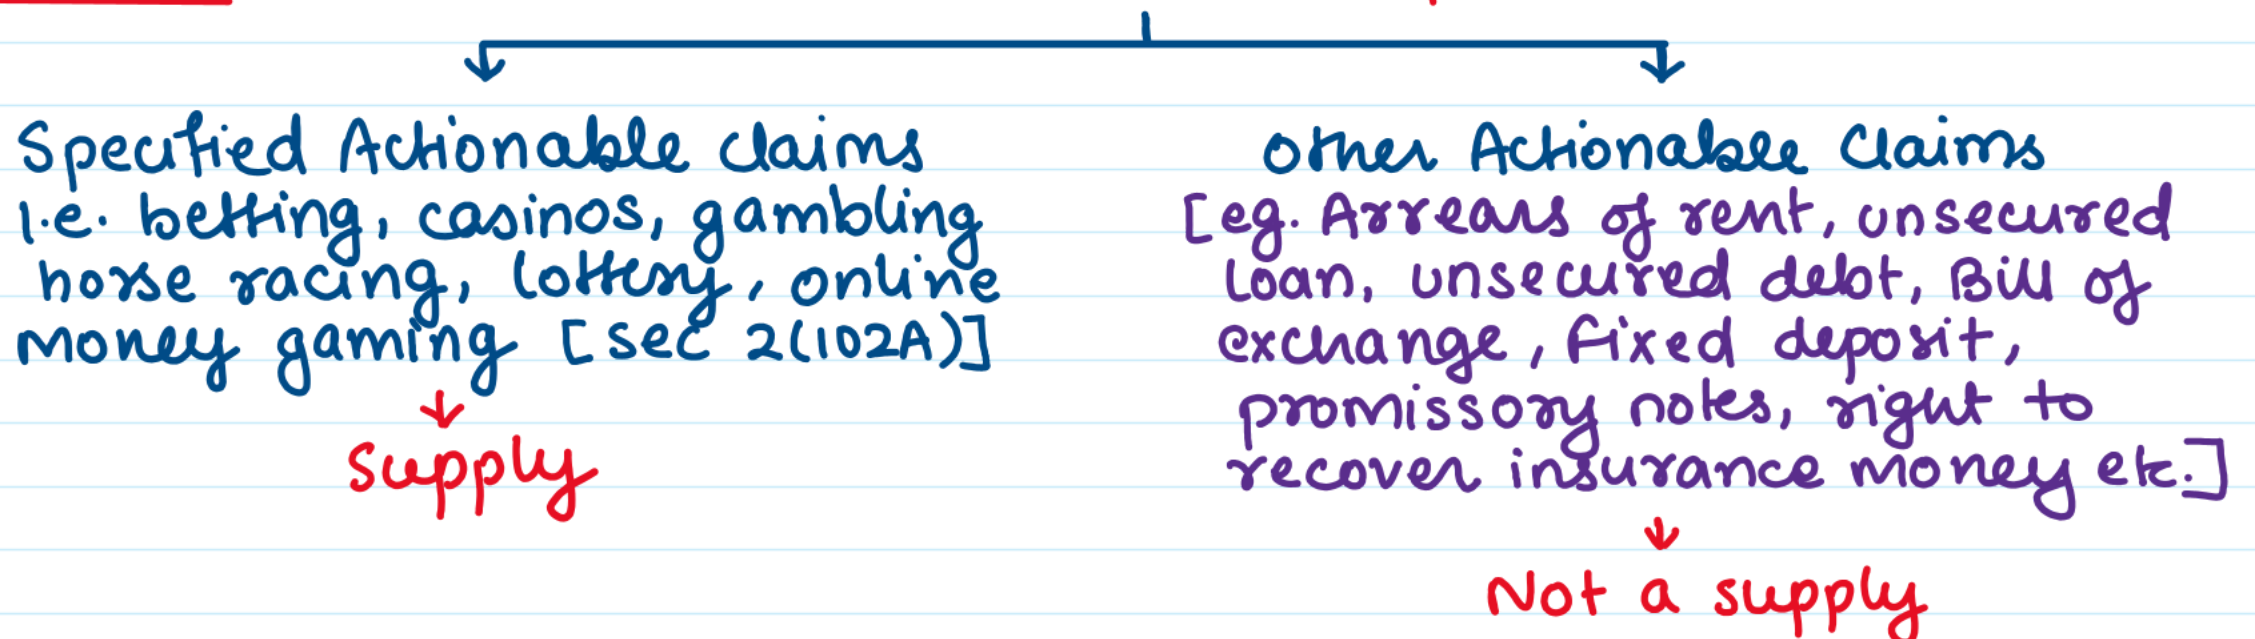 Specified Actionable claims
i.e. betting, casinos, gambling
horse racing, lottery, online
money gaming [sec 2(102A)]
↓
Supply
Other Actionable Claims
[eg. Arrears of rent, unsecured
loan, unsecured debt, Bill of
exchange, fixed deposit,
promissory notes, right to
recover insurance money etc.]
↓
Not a supply